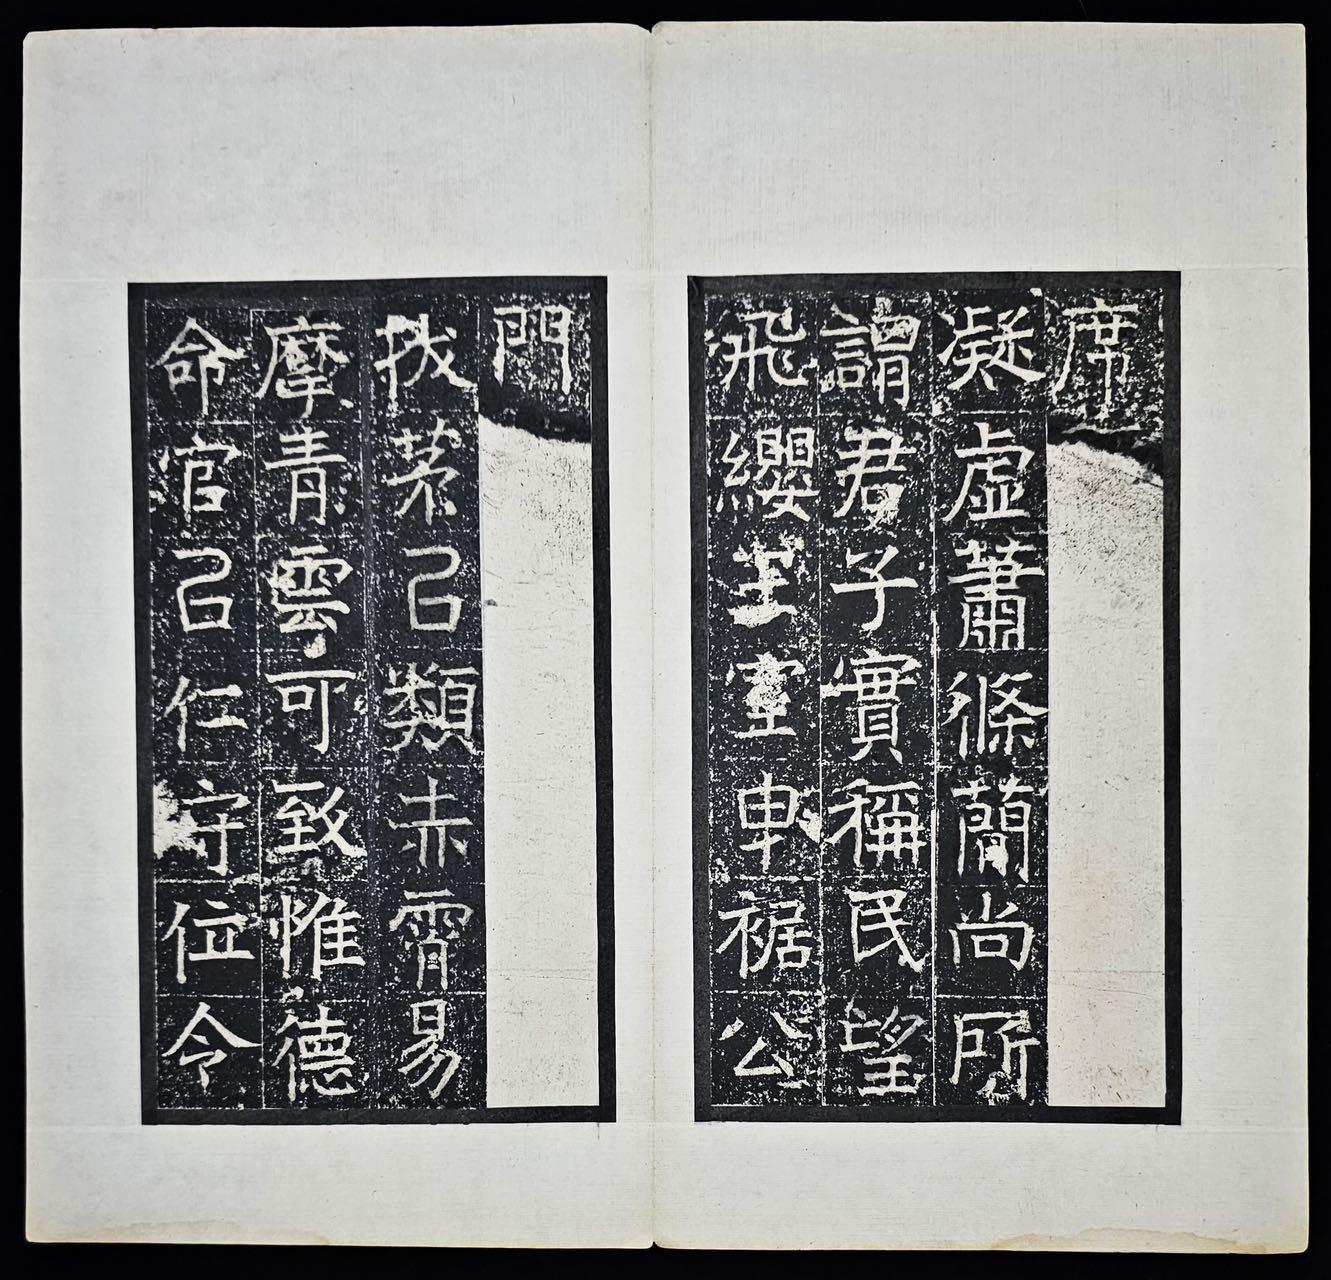 席
凝虛蕭條簡尚所
謂君子實稱民望
飛纓王室曳裾公
門
拔茅㠯類赤霄易
摩青雲可致惟德
命官㠯仁守位令